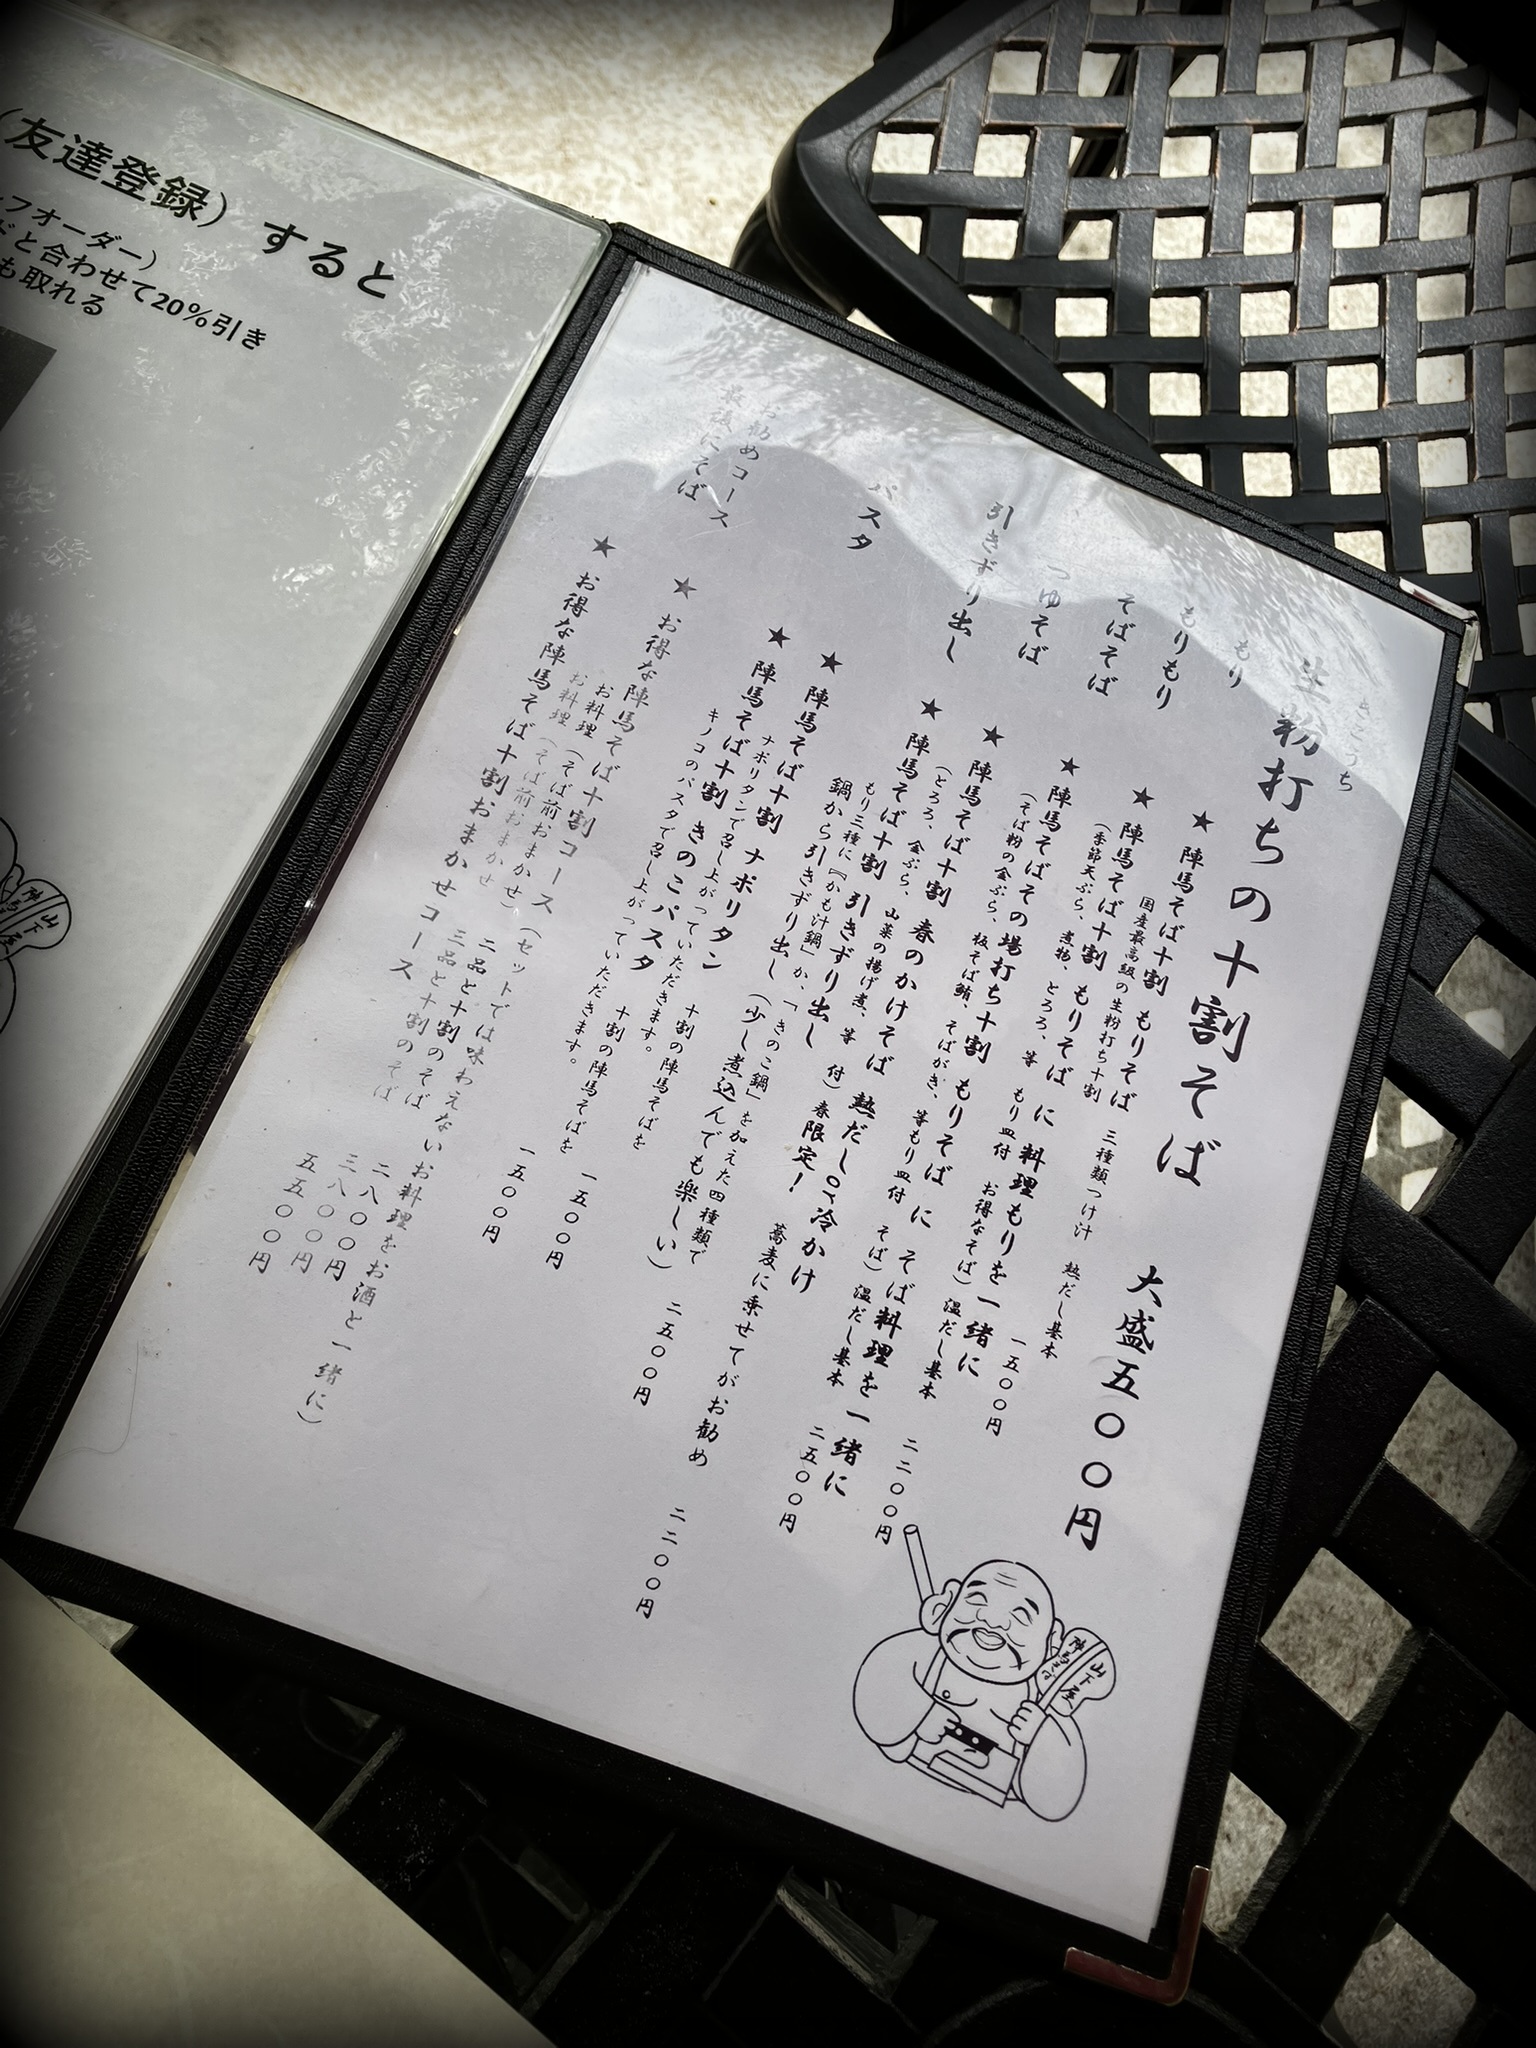 きこうち
生粉打ちの十割そば 大盛五〇〇円
もり
★陣馬そば十割 もりそば 三種類つけ汁 熱だし基本 一五〇〇円
国産最高級の生粉打ち十割
もりもり
★陣馬そば十割 もりそば に 料理もりを一緒に 二二〇〇円
(季節天ぷら、煮物、とろろ、等 もり皿付 お得なそば)温だし基本
そばそば
★陣馬そばその場打ち十割 もりそば に そば料理を一緒に 二五〇〇円
(そば粉の金ぷら、板そば鮪、そばがき、等もり皿付 そば)温だし基本
つゆそば
★陣馬そば十割 春のかけそば 熱だしor冷かけ
(とろろ、金ぷら、山菜の揚げ煮、等 付)春限定! 二二〇〇円
引きずり出し
★陣馬そば十割 引きずり出し (少し煮込んでも楽しい) 二五〇〇円
もり三種に『かも汁鍋」か、「きのこ鍋」を加えた四種類で
鍋から引きずり出し 蕎麦に乗せてがお勧め
パスタ
★陣馬そば十割 ナポリタン 十割の陣馬そばを 一五〇〇円
ナポリタンで召し上がっていただきます。
★陣馬そば十割 きのこパスタ 十割の陣馬そばを 一五〇〇円
キノコのパスタで召し上がっていただきます。
お勧めコース
最後にそば
★お得な陣馬そば十割コース(セットでは味わえないお料理をお酒と一緒に)
お料理(そば前おまかせ)二品と十割のそば 二八〇〇円
お料理(そば前おまかせ 三品と十割のそば 三八〇〇円
★お得な陣馬そば十割おまかせコース 五五〇〇円
山下屋
陣馬そば
(友達登録)すると
フオーダー)
と合わせて20%引き
も取れる
山下屋
陣馬